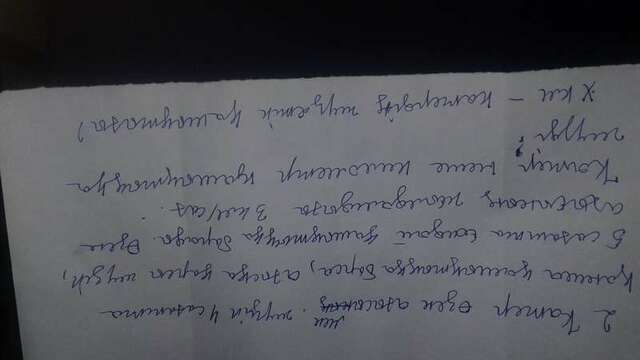 2 Катер өзен ағысымен жүзіп 4 сағатта
қанша қашықтыққа барса, ағысқа қарсы жүзіп,
5 сағатта сондай қашықтыққа барады. Өзен
ағысының жылдамдығы 3 км/сағ.
Катер неше километр қашықтыққа
жүзді?
X км – катердің жүзетін қашықтығы?